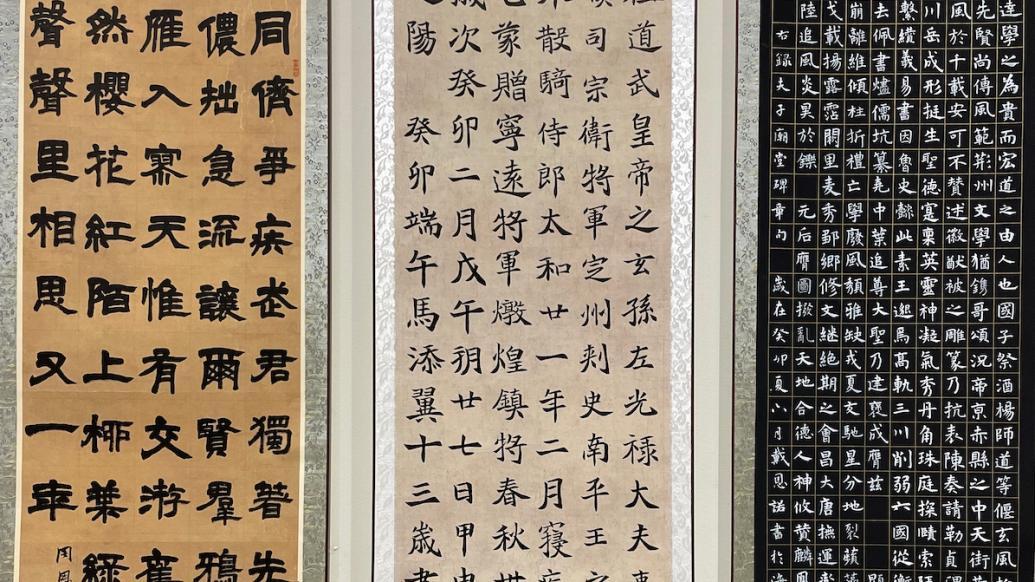 同儕爭疾走君獨著先
儂拙急流讓爾賢羣鴉
雁入寥天惟有交游舊
然櫻花紅陌上柳葉綠
聲聲里相思又一年
道武皇帝之玄孫左光祿大夫
司宗衛將軍定州刺史南平王之
散騎侍郎太和廿一年二月寢疾
蒙贈寧遠將軍燉煌鎮將春秋
次癸卯二月戊午朔廿七日甲申
陽 癸卯端午馬添翼十三歲書
達學之為貴而宏道之由人也國子祭酒楊師道等偃玄風
先賢尚傳風範荊州文學猶鐫哥頌況帝京赤縣之中天街
風於千載安可不贊述徽猷被之雕篆乃抗表陳奏請勒貞
川岳成形挺生聖德寔稟英靈神凝氣秀丹角珠庭探賾索
繫纘義易書因魯史懿此素王邈焉高軌三川削弱六國從衡
去佩書燼儒坑纂堯中葉追尊大聖乃建褒成膺茲
崩離維傾柱折禮亡學廢風頹雅缺戎夏交馳星分地裂蘋
戈載揚露霑闕里麥秀鄒鄉修文繼絕期之會昌大唐撫運
陸追風炎昊於鑠元后膺圖撥亂天地合德人神攸贊麟鳳
右錄夫子廟堂碑章句 歲在癸卯夏六月戴恩諾書於